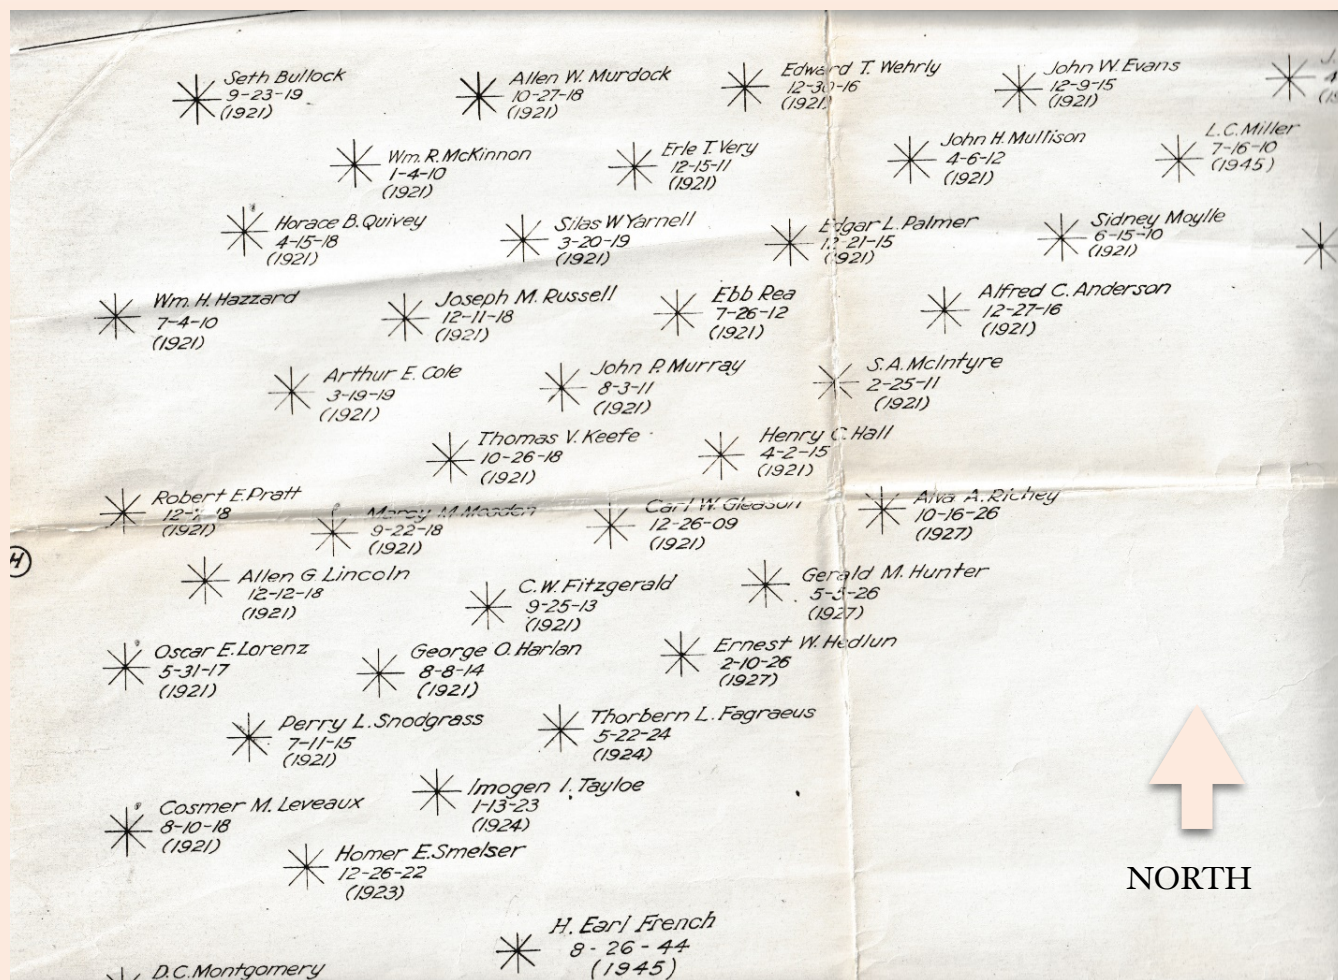 Seth Bullock
9-23-19
(1921)
Allen W. Murdock
10-27-18
(1921)
Edward T. Wehrly
12-30-16
(1921)
John W. Evans
12-9-15
(1921)
J.
4
Wm. R. McKinnon
1-4-10
(1921)
Erle T. Very
12-15-11
(1921)
John H. Mullison
4-6-12
(1921)
L.C. Miller
7-16-10
(1945)
Horace B. Quivey
4-15-18
(1921)
Silas W Yarnell
3-20-19
(1921)
Edgar L. Palmer
12-21-15
(1921)
Sidney Moylle
6-15-10
(1921)
Wm. H. Hazzard
7-4-10
(1921)
Joseph M. Russell
12-11-18
(1921)
Ebb Rea
7-26-12
(1921)
Alfred C. Anderson
12-27-16
(1921)
Arthur E. Cole
3-19-19
(1921)
John P. Murray
8-3-11
(1921)
S.A. McIntyre
2-25-11
(1921)
Thomas V. Keefe
10-26-18
(1921)
Henry C. Hall
4-2-15
(1921)
Robert E. Pratt
(1921)
9-22-18
(1921)
Carl W. Gleason
12-26-09
(1921)
Alva A. Richey
10-16-26
(1927)
H
Allen G. Lincoln
12-12-18
(1921)
C.W. Fitzgerald
9-25-13
(1921)
Gerald M. Hunter
5-5-26
(1927)
Oscar E. Lorenz
5-31-17
(1921)
George O. Harlan
8-8-14
(1921)
Ernest W. Hedlun
2-10-26
(1927)
Perry L. Snodgrass
7-11-15
(1921)
Thorbern L. Fagraeus
5-22-24
(1924)
Imogen I. Tayloe
1-13-23
(1924)
Cosmer M. Leveaux
8-10-18
(1921)
Homer E. Smelser
12-26-22
(1923)
NORTH
H. Earl French
8-26-44
(1945)
D.C. Montgomery